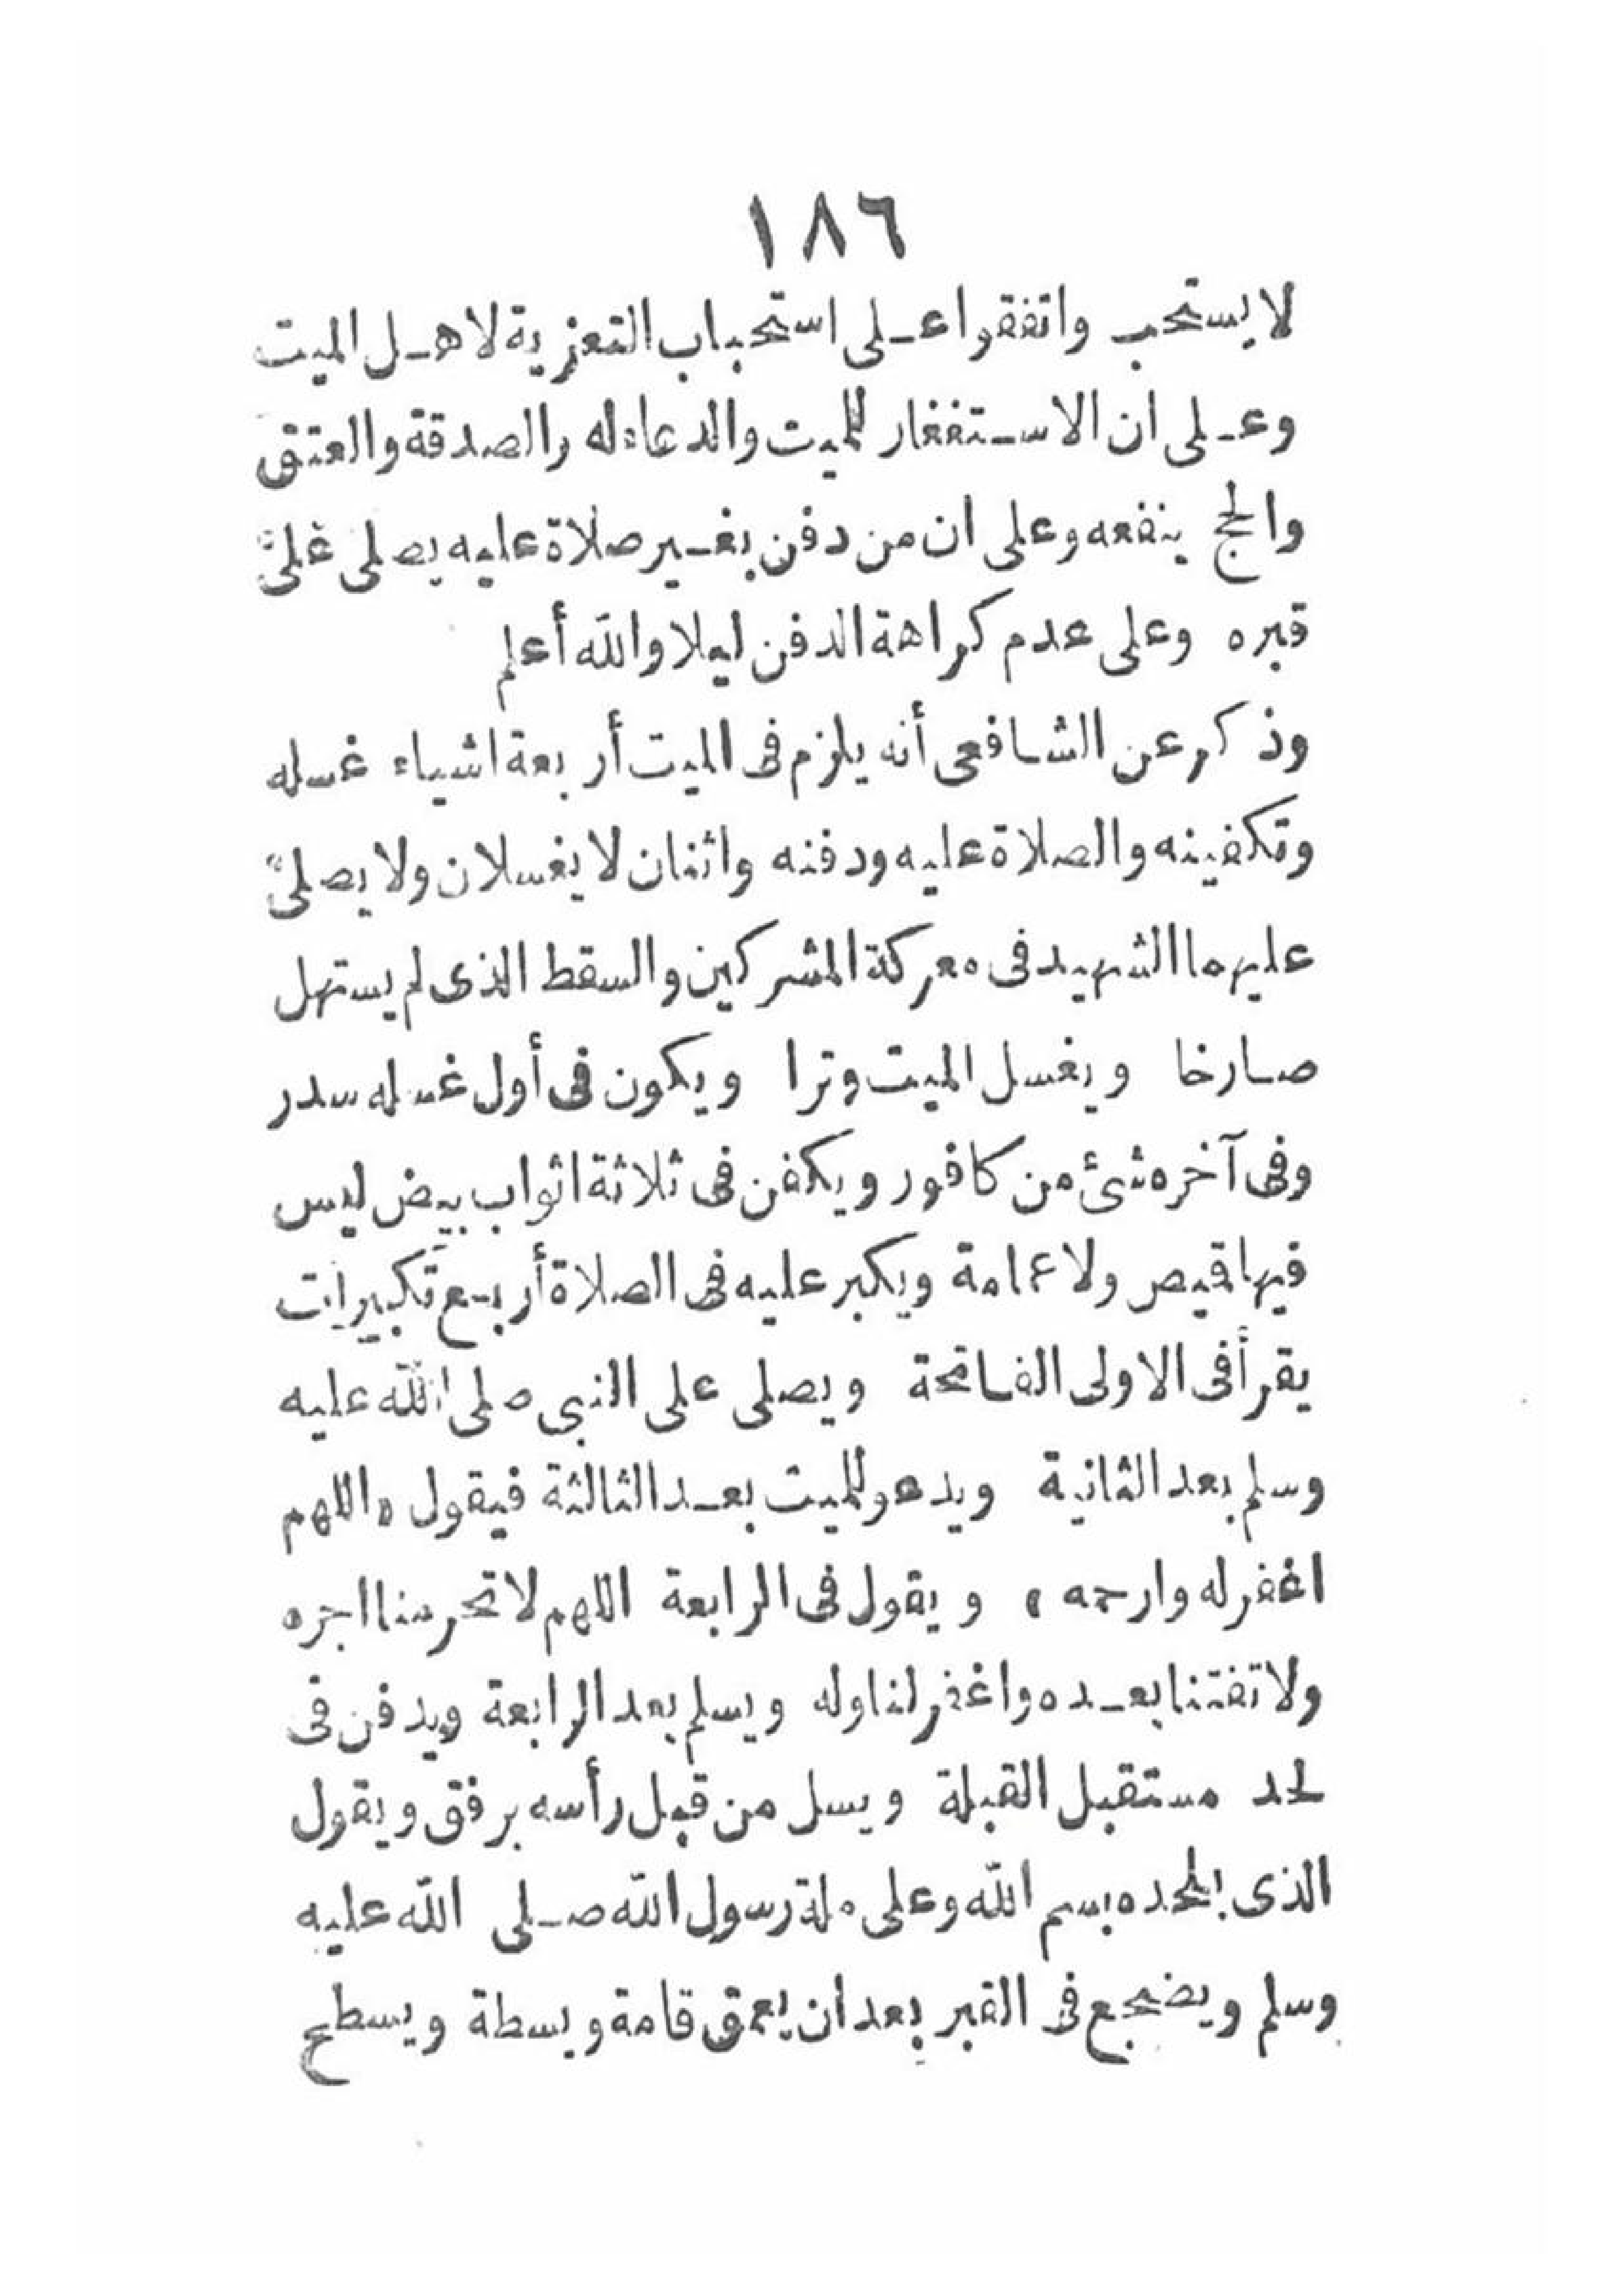 ١٨٦
لا يستحب واتفقوا على استحباب التعزية لاهل الميت
وعلى ان الاستغفار للميت والدعاء له والصدقة والعتق
والحج ينفعه وعلى ان من دفن بغير صلاة عليه يصلى على
قبره وعلى عدم كراهة الدفن ليلا والله أعلم
وذكر عن الشافعى أنه يلزم فى الميت أربعة اشياء غسله
وتكفينه والصلاة عليه ودفنه واثنان لا يغسلان ولا يصلى
عليهما الشهيد فى معركة المشركين والسقط الذى لم يستهل
صارخا ويغسل الميت وترا ويكون فى أول غسله سدر
وفى آخره شئ من كافور ويكفن فى ثلاثة اثواب بيض ليس
فيها قميص ولا عمامة ويكبر عليه فى الصلاة أربع تكبيرات
يقرأ فى الاولى الفاتحة ويصلى على النبى صلى الله عليه
وسلم بعد الثانية ويدعو للميت بعد الثالثة فيقول «اللهم
اغفر له وارحمه» ويقول فى الرابعة اللهم لا تحرمنا اجره
ولا تفتنا بعده واغفر لنا وله ويسلم بعد الرابعة ويدفن فى
لحد مستقبل القبلة ويسل من قبل رأسه برفق ويقول
الذى يلحده بسم الله وعلى ملة رسول الله صلى الله عليه
وسلم ويضجع فى القبر بعد ان يعمق قامة وبسطة ويسطح